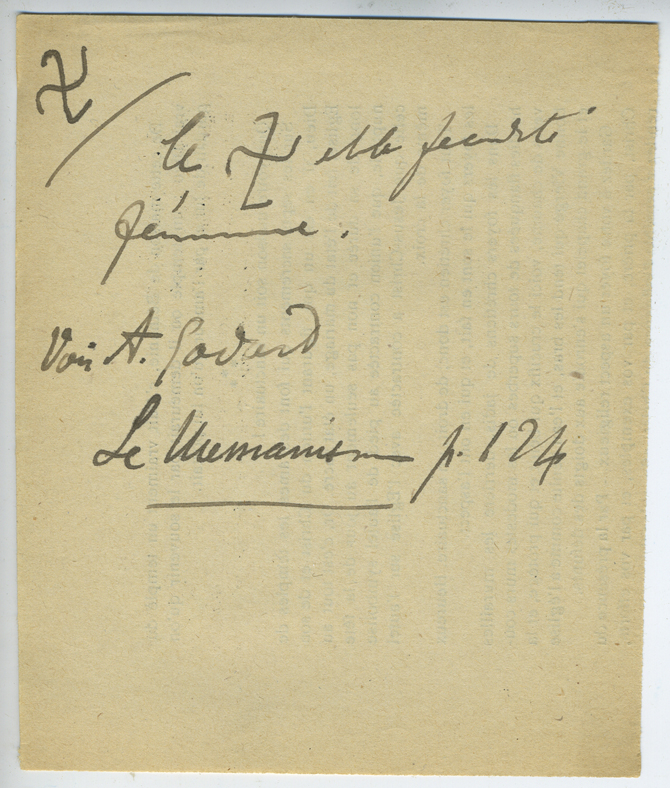 卐
le 卐 et la fécondité
féminine.
Voir A. Godard
Le Messianisme p. 124